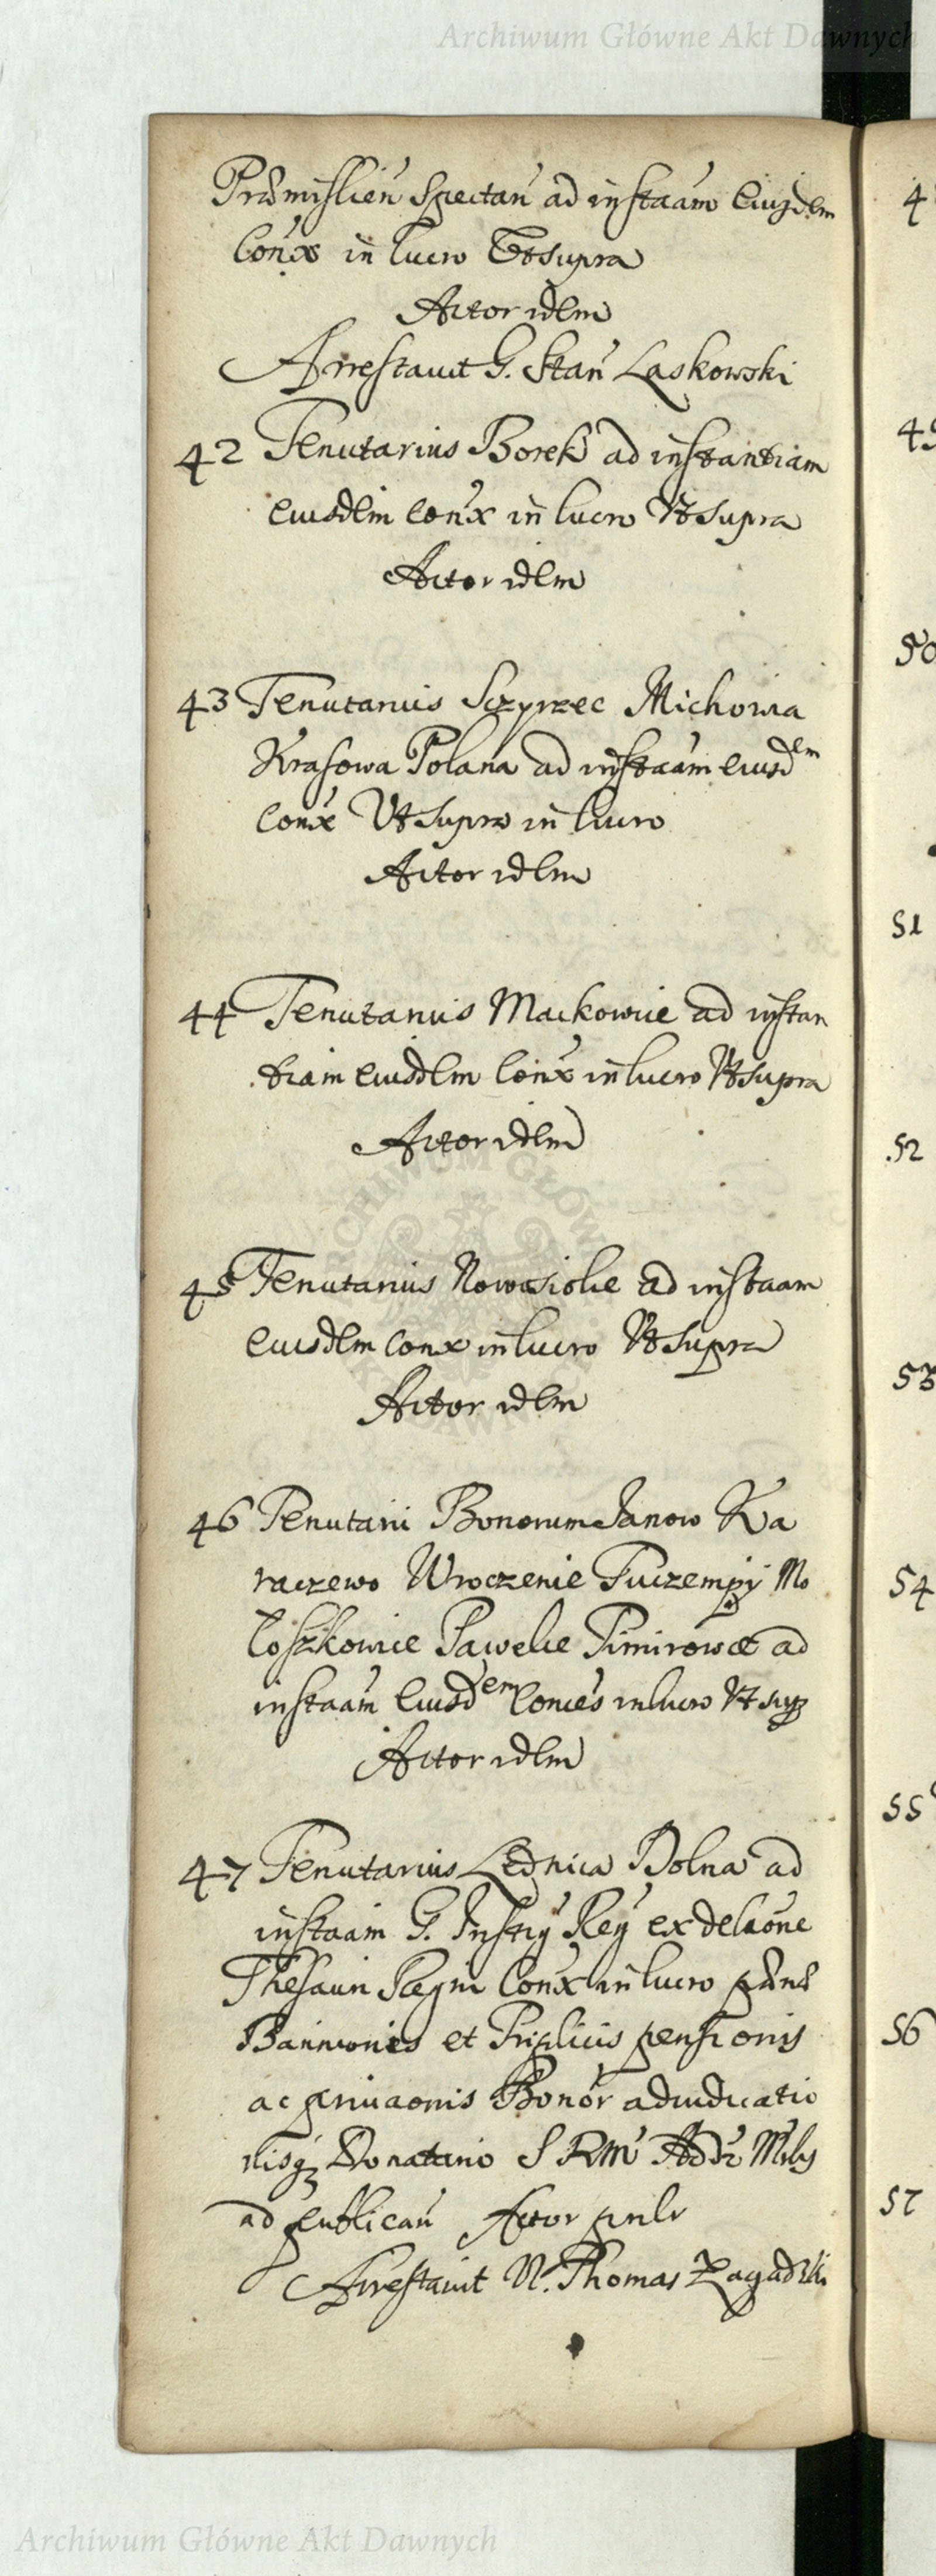 Archiwum Główne Akt Dawnych
Præmislien̄ Spectan̄ ad instaām Eiusdem
Con̄x in lucro Vtsupra
Actor idem
Arrestauit G. Stan̄ Laskowski
42 Tenutarius Borek ad instantiam
Eiusdem Con̄x in lucro Vtsupra
Actor idem
43 Tenutarius Sczyrzec Michowia
Krasowa Polana ad instaām Eiusdem
Con̄x Vtsupra in lucro
Actor idem
44 Tenutarius Mackowice ad instan
tiam Eiusdem Con̄x in lucro Vtsupra
Actor idem
45 Tenutarius Nowosiolce ad instaam
Eiusdem Conx in lucro Vtsupra
Actor idem
46 Tenutarii Bonorum Janow Ka
raczewo Wroczenie Tuczempy Mo
loszkowice Pawelce Pimirowce ad
instaām Eiusdem Conies in lucro Vt sup
Actor idem
47 Tenutarius Lednica Dolna ad
instaām G. Instig Reg ex delaōne
Thesauri Regni Con̄x in lucro
Bannionis et Triplicis pensionis
ac priuaonis Bonor̄ adiudicatio
nisq Donatario S R M
ad publican̄ Actor pnlr
Arrestauit N. Thomas Zagadzki
4
49
50
51
52
53
54
55
56
57
Archiwum Główne Akt Dawnych